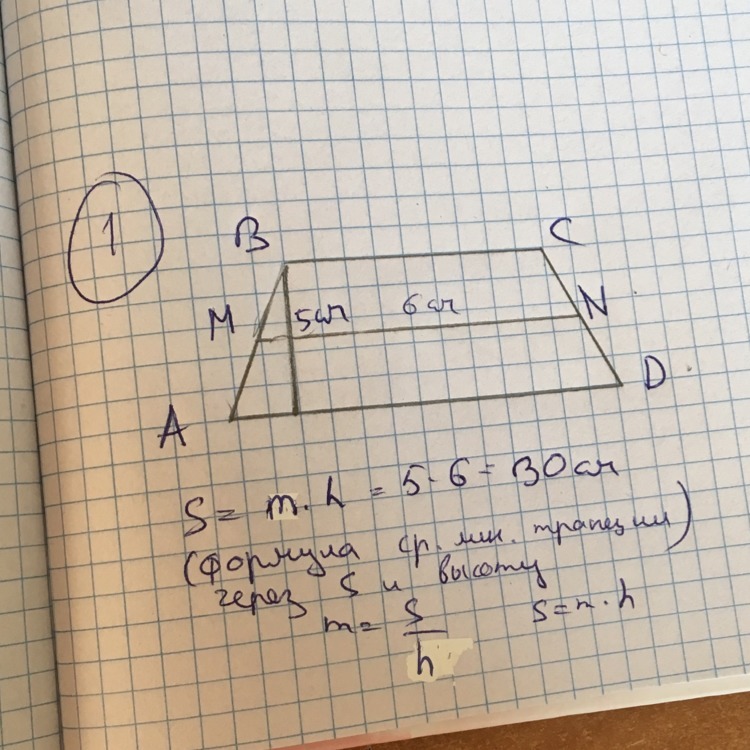 1
B C
M 5см 6см N
A D
S = m · h = 5 · 6 = 30 см
(формула ср. лин. трапеции)
через S и высоту
m = S/h S = m · h